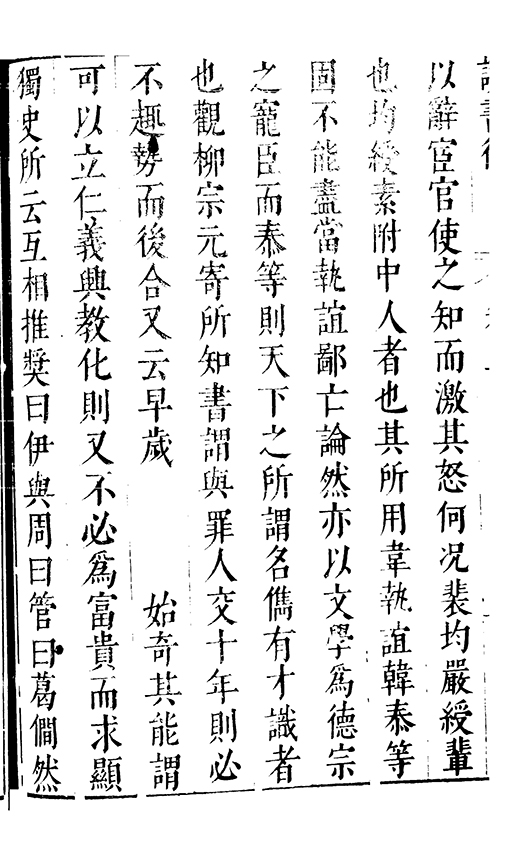 讀書後
以辭宦官使之知而激其怒何况裴均嚴綬輩
也均綬素附中人者也其所用韋執誼韓泰等
固不能盡當執誼鄙亡論然亦以文學爲德宗
之寵臣而泰等則天下之所謂名儁有才識者
也觀柳宗元寄所知書謂與罪人交十年則必
不趣勢而後合又云早歲　　　始奇其能謂
可以立仁義興教化則又不必爲富貴而求顯
獨史所云互相推奬曰伊與周曰管曰葛僩然